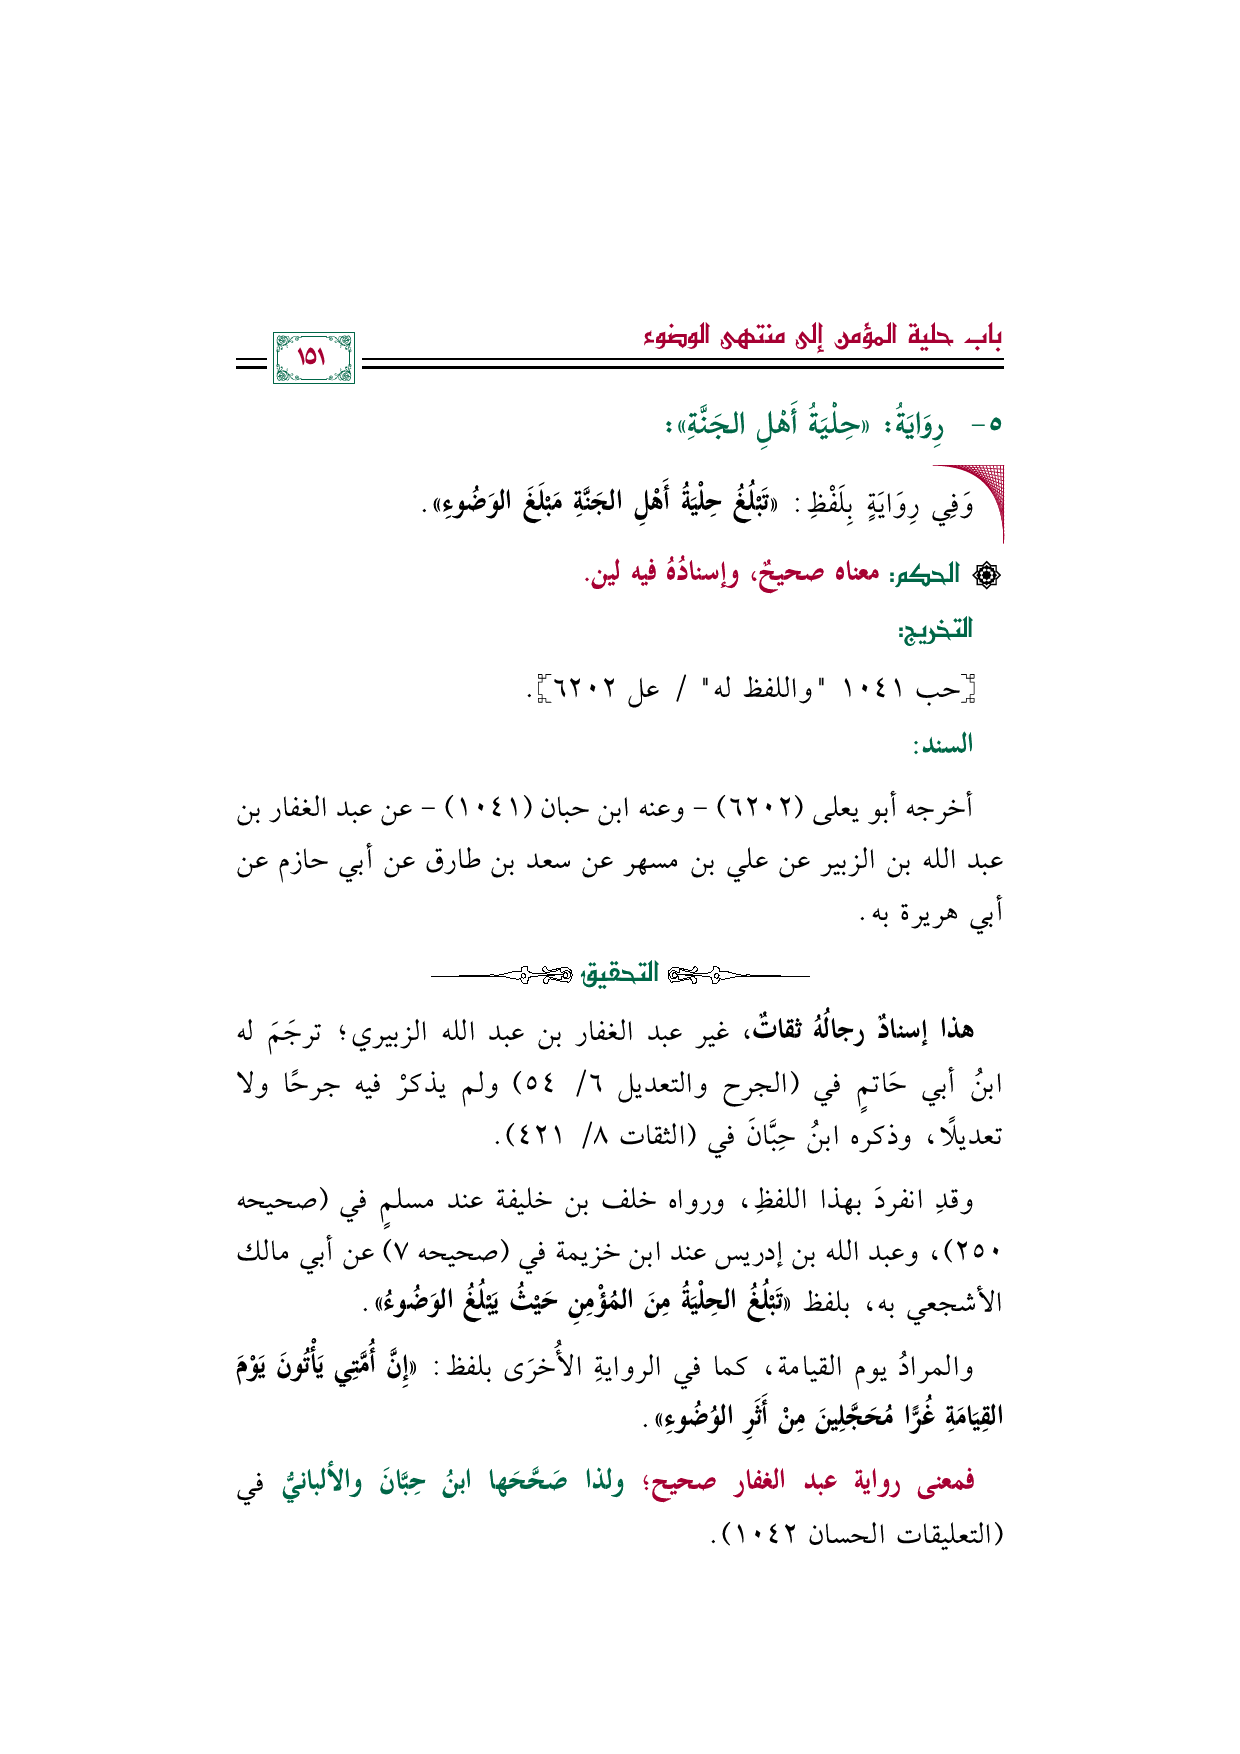 باب حلية المؤمن إلى منتهى الوضوء
١٥١
٥- رِوَايَةُ: «حِلْيَةُ أَهْلِ الجَنَّةِ»:
وَفِي رِوَايَةٍ بِلَفْظِ: «تَبْلُغُ حِلْيَةُ أَهْلِ الجَنَّةِ مَبْلَغَ الوَضُوءِ».
الحكم: معناه صحيحٌ، وإسنادُهُ فيه لين.
التخريج:
[حب ١٠٤١ "واللفظ له" / عل ٦٢٠٢].
السند:
أخرجه أبو يعلى (٦٢٠٢) - وعنه ابن حبان (١٠٤١) - عن عبد الغفار بن
عبد الله بن الزبير عن علي بن مسهر عن سعد بن طارق عن أبي حازم عن
أبي هريرة به.
التحقيق
هذا إسنادٌ رجالُهُ ثقاتٌ، غير عبد الغفار بن عبد الله الزبيري؛ ترجَمَ له
ابنُ أبي حَاتمٍ في (الجرح والتعديل ٦/ ٥٤) ولم يذكرْ فيه جرحًا ولا
تعديلًا، وذكره ابنُ حِبَّانَ في (الثقات ٨/ ٤٢١).
وقدِ انفردَ بهذا اللفظِ، ورواه خلف بن خليفة عند مسلمٍ في (صحيحه
٢٥٠)، وعبد الله بن إدريس عند ابن خزيمة في (صحيحه ٧) عن أبي مالك
الأشجعي به، بلفظ «تَبْلُغُ الحِلْيَةُ مِنَ المُؤْمِنِ حَيْثُ يَبْلُغُ الوَضُوءُ».
والمرادُ يوم القيامة، كما في الروايةِ الأُخرَى بلفظ: «إِنَّ أُمَّتِي يَأْتُونَ يَوْمَ
القِيَامَةِ غُرًّا مُحَجَّلِينَ مِنْ أَثَرِ الوُضُوءِ».
فمعنى رواية عبد الغفار صحيح؛ ولذا صَحَّحَها ابنُ حِبَّانَ والألبانيُّ في
(التعليقات الحسان ١٠٤٢).